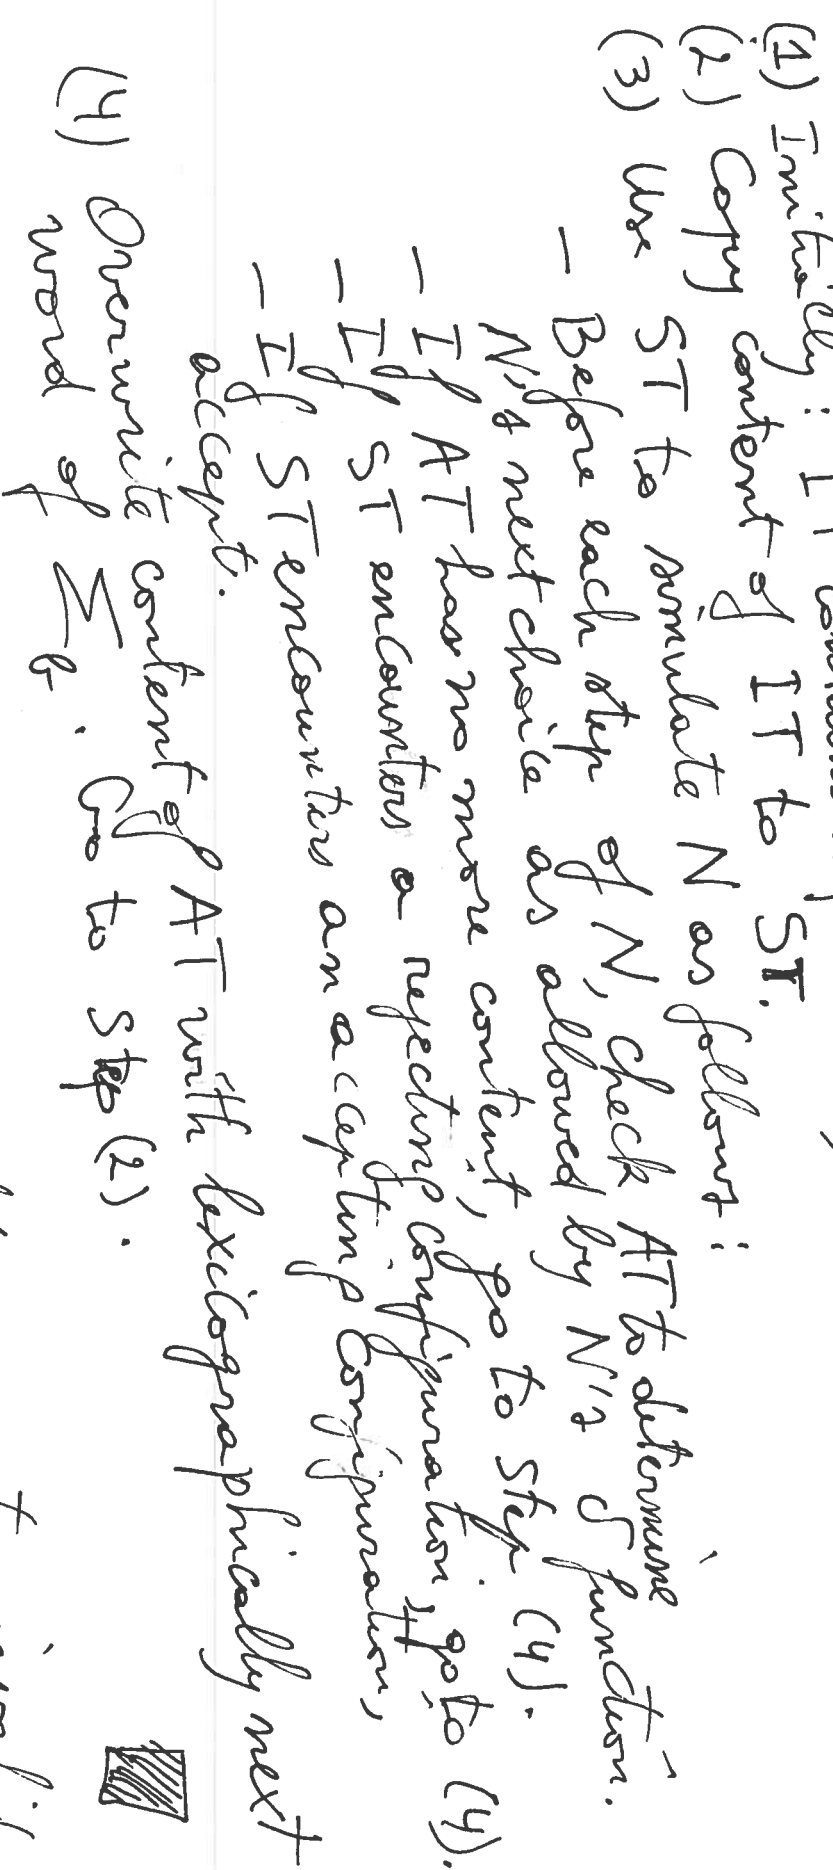 (1) Initially: IT
(2) Copy content of IT to ST.
(3) Use ST to simulate N as follows:
– Before each step of N, check AT to determine
N's next choice as allowed by N's δ function.
– If AT has no more content, go to step (4).
– If ST encounters a rejecting configuration, go to (4).
– If ST encounters an accepting configuration,
accept.
(4) Overwrite content of AT with lexicographically next
word of Σ_b. Go to step (2).